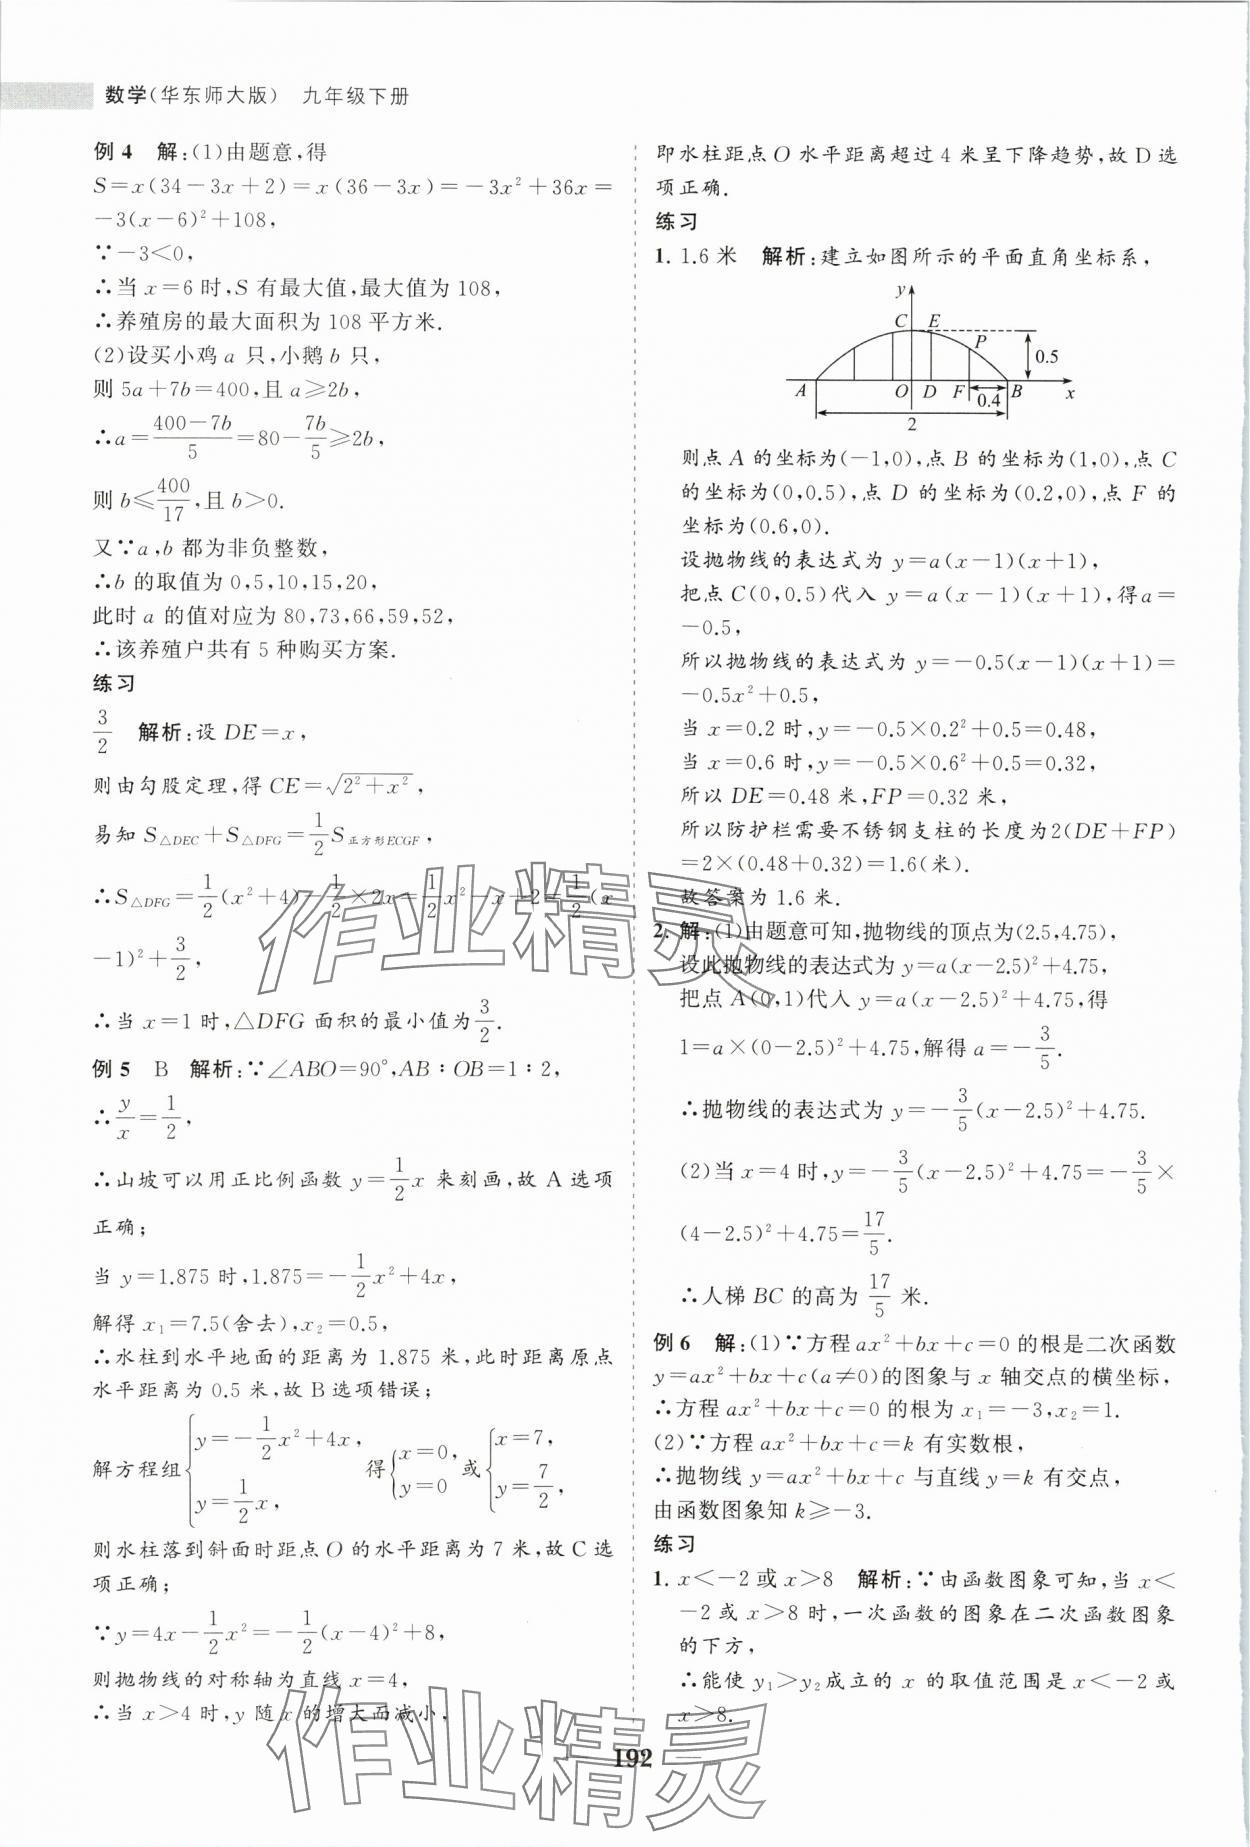 数学(华东师大版) 九年级下册
例4 解:(1)由题意,得
S=x(34-3x+2)=x(36-3x)=-3x²+36x=
-3(x-6)²+108,
∵-3<0,
∴当x=6时,S有最大值,最大值为108,
∴养殖房的最大面积为108平方米.
(2)设买小鸡a只,小鹅b只,
则5a+7b=400,且a≥2b,
∴a=\frac{400-7b}{5}=80-\frac{7b}{5}≥2b,
则b≤\frac{400}{17},且b>0.
又∵a,b都为非负整数,
∴b的取值为0,5,10,15,20,
此时a的值对应为80,73,66,59,52,
∴该养殖户共有5种购买方案.
练习
\frac{3}{2} 解析:设DE=x,
则由勾股定理,得CE=\sqrt{2²+x²},
易知S_{△DEC}+S_{△DFG}=\frac{1}{2}S_{正方形ECGF},
∴S_{△DFG}=\frac{1}{2}(x²+4)-\frac{1}{2}×2x=\frac{1}{2}x²-x+2=\frac{1}{2}(x
-1)²+\frac{3}{2},
∴当x=1时,△DFG面积的最小值为\frac{3}{2}.
例5 B 解析:∵∠ABO=90°,AB:OB=1:2,
∴\frac{y}{x}=\frac{1}{2},
∴山坡可以用正比例函数y=\frac{1}{2}x来刻画,故A选项
正确;
当y=1.875时,1.875=-\frac{1}{2}x²+4x,
解得x₁=7.5(舍去),x₂=0.5,
∴水柱到水平地面的距离为1.875米,此时距离原点
水平距离为0.5米,故B选项错误;
解方程组{y=-\frac{1}{2}x²+4x, y=\frac{1}{2}x, 得{x=0, y=0 或{x=7, y=\frac{7}{2},
则水柱落到斜面时距点O的水平距离为7米,故C选
项正确;
∵y=4x-\frac{1}{2}x²=-\frac{1}{2}(x-4)²+8,
则抛物线的对称轴为直线x=4,
∴当x>4时,y随x的增大而减小,
即水柱距点O水平距离超过4米呈下降趋势,故D选
项正确.
练习
1. 1.6米 解析:建立如图所示的平面直角坐标系,
y
C E
P
0.5
A O D F B x
0.4
2
则点A的坐标为(-1,0),点B的坐标为(1,0),点C
的坐标为(0,0.5),点D的坐标为(0.2,0),点F的
坐标为(0.6,0).
设抛物线的表达式为y=a(x-1)(x+1),
把点C(0,0.5)代入y=a(x-1)(x+1),得a=
-0.5,
所以抛物线的表达式为y=-0.5(x-1)(x+1)=
-0.5x²+0.5,
当x=0.2时,y=-0.5×0.2²+0.5=0.48,
当x=0.6时,y=-0.5×0.6²+0.5=0.32,
所以DE=0.48米,FP=0.32米,
所以防护栏需要不锈钢支柱的长度为2(DE+FP)
=2×(0.48+0.32)=1.6(米).
故答案为1.6米.
2. 解:(1)由题意可知,抛物线的顶点为(2.5,4.75),
设此抛物线的表达式为y=a(x-2.5)²+4.75,
把点A(0,1)代入y=a(x-2.5)²+4.75,得
1=a×(0-2.5)²+4.75,解得a=-\frac{3}{5}.
∴抛物线的表达式为y=-\frac{3}{5}(x-2.5)²+4.75.
(2)当x=4时,y=-\frac{3}{5}(x-2.5)²+4.75=-\frac{3}{5}×
(4-2.5)²+4.75=\frac{17}{5}.
∴人梯BC的高为\frac{17}{5}米.
例6 解:(1)∵方程ax²+bx+c=0的根是二次函数
y=ax²+bx+c(a≠0)的图象与x轴交点的横坐标,
∴方程ax²+bx+c=0的根为x₁=-3,x₂=1.
(2)∵方程ax²+bx+c=k有实数根,
∴抛物线y=ax²+bx+c与直线y=k有交点,
由函数图象知k≥-3.
练习
1. x<-2或x>8 解析:∵由函数图象可知,当x<
-2或x>8时,一次函数的图象在二次函数图象
的下方,
∴能使y₁>y₂成立的x的取值范围是x<-2或
x>8.
192
作业精灵
作业精灵